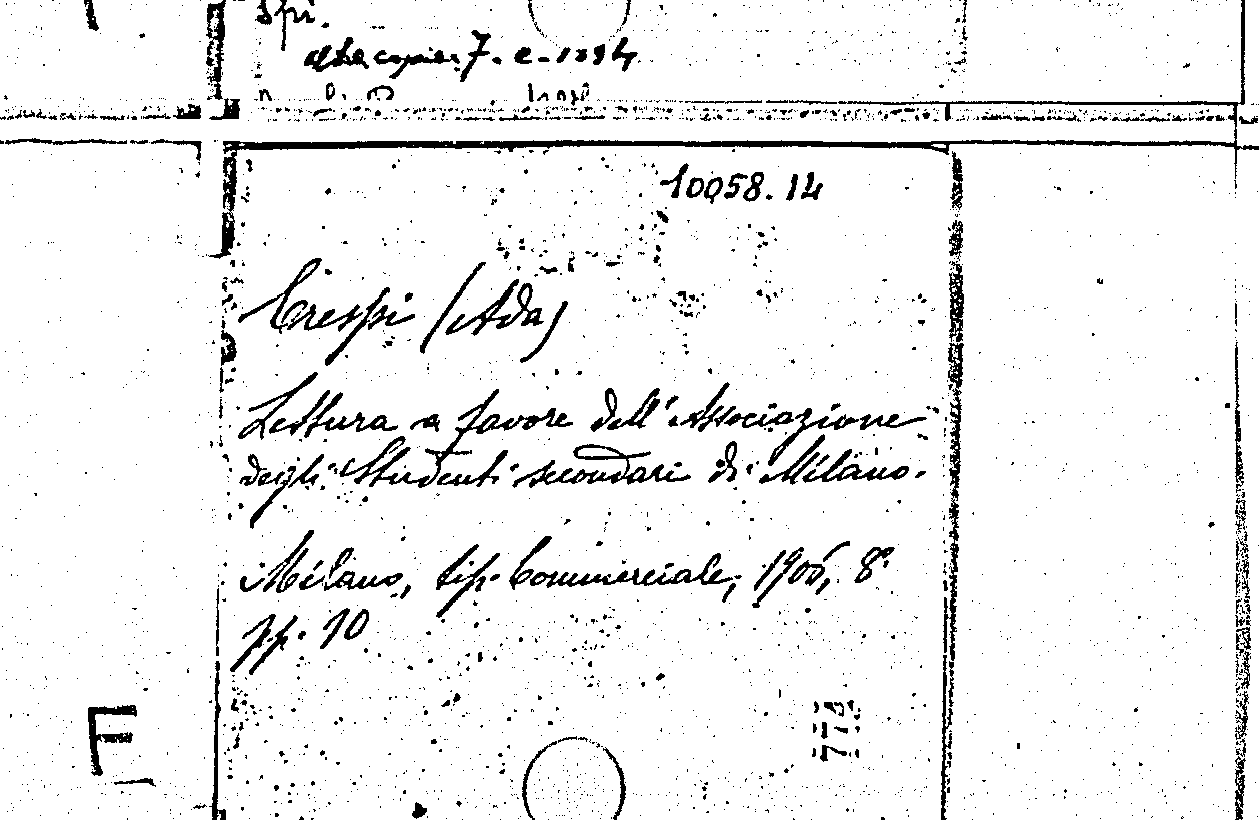 Spi.
altra copia: 7. e. 1894
10058.14
Crespi (Ada)
Lettura a favore dell'Associazione
degli Studenti secondari di Milano.
Milano, tip. Commerciale, 1905, 8º
pp. 10
E